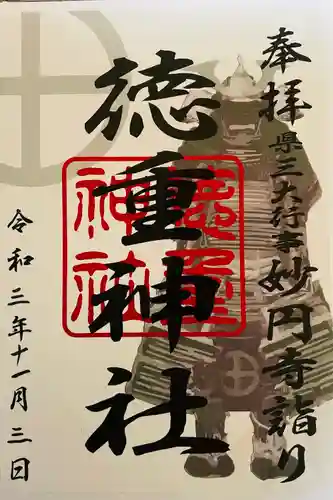 奉拝
県三大行事妙円寺詣り
徳重神社
徳重神社
令和三年十一月三日